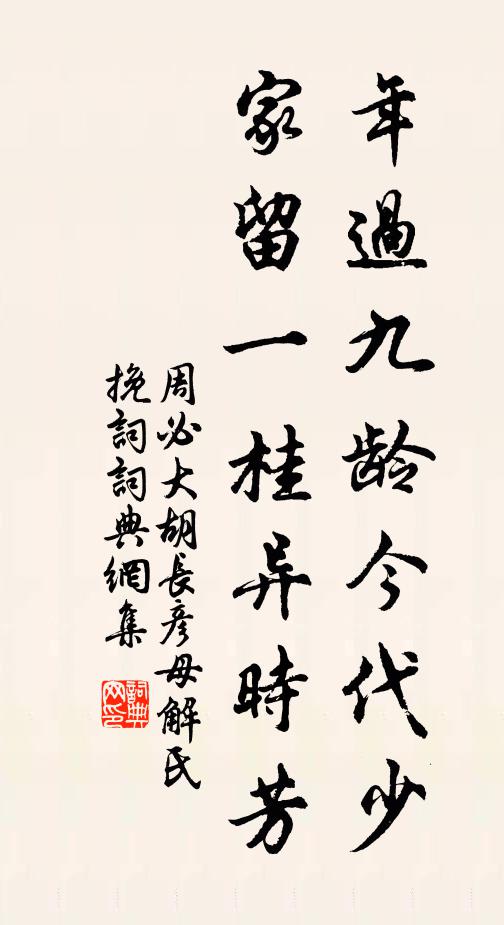 年過九龄今代少
家留一桂异時芳
周必大胡長彦母解氏
挽詞詞典網集
詞典网印